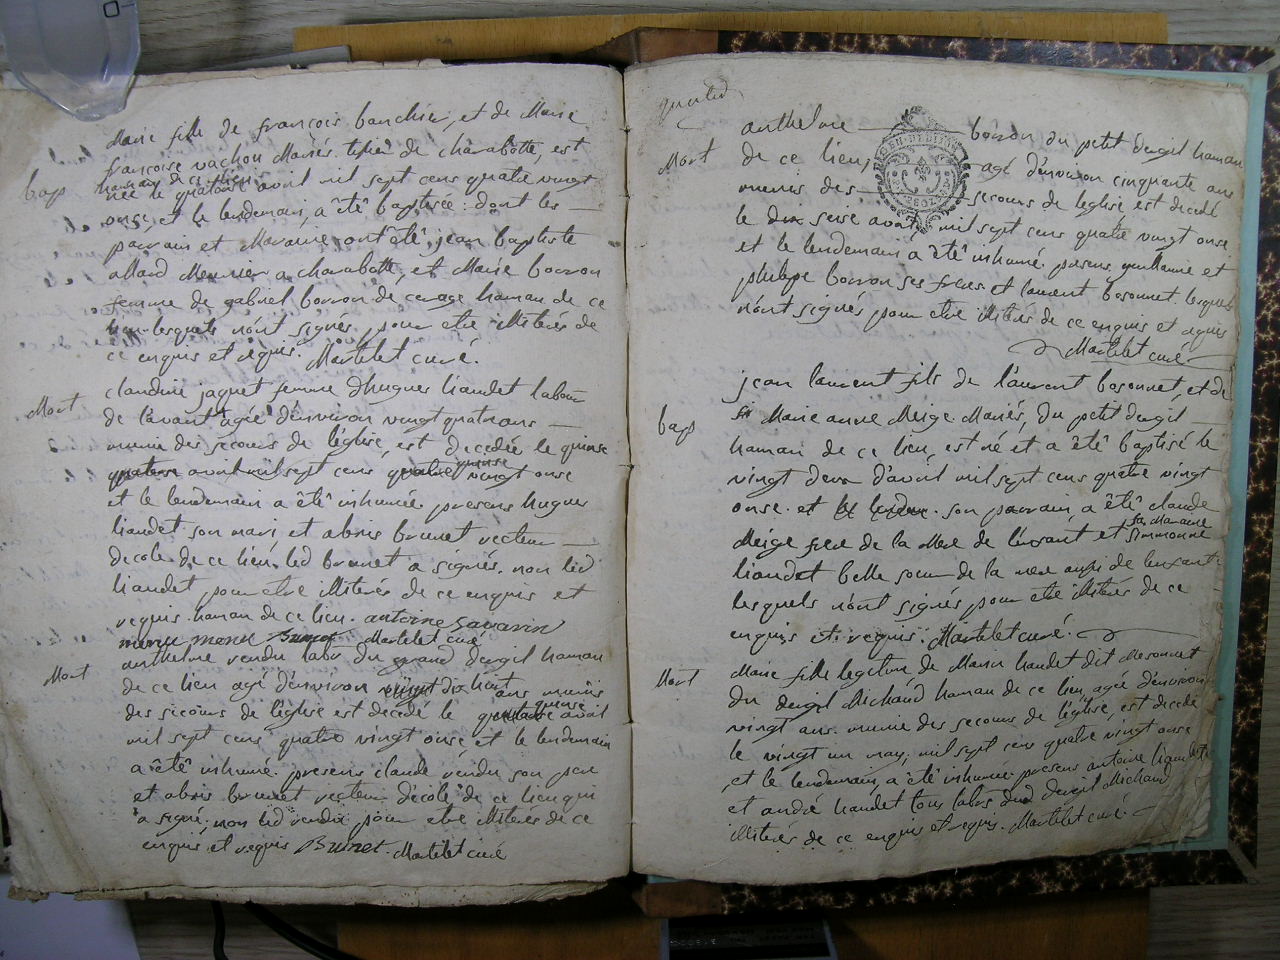 Marie fille de françois banchier, et de Marie
françoise vachou Mariés. de charabotte, est
hamau de ce lieu
bap
née le quatorse avril mil sept cens quatre vingt
onse, et le lendemain, a été baptisée: dont les
parrain et Maraine, ont été, jean baptiste
allard Meunier a charabotte, et Marie borron
femme de gabriel borron de hamau de ce
lieu lesquels n'ont signés pour etre illiterés de
ce enquis et requis. Martelet curé.
Mort
claudine jaquet femme d'hugues liaudet labour
de l'avant, agée d'environ vingt quatre ans
munie des secours de l'église, est decedée le quinse
quatorse avril mil sept cens quatre vingt onse
et le lendemain a été inhumée. presens hugues
liaudet son mari et brunet recteur
decole de ce lieu, led brunet a signés. non led
liaudet pour etre illiterés de ce enquis et
requis. hamau de ce lieu. antoine savarin
Martelet curé
Mort
anthelme vendu labr du grand dergil hamau
de ce lieu agé d'environ vingt dix huit ans munis
des secours de l'église est decedé le quatorse quinse avril
mil sept cens quatre vingt onse et le lendemain
a été inhumé. presens claude vendu son pere
et brunet recteur d'école de ce lieu qui
a signé, non led vendu pour etre illiterés de ce
enquis et requis Brunet. Martelet curé
Mort
anthelme borron du petit dergil hamau
de ce lieu, agé d'environ cinquante ans
munis des secours de l'église est decedé
le dix seise avril, mil sept cens quatre vingt onse
et le lendemain a été inhumé. presens guillaume et
philipe borron ses freres et laurent bosonnet. lesquels
n'ont signés pour etre illiterés de ce enquis et requis
Martelet curé
jean laurent fils de laurent bosonnet, et de
bap
Marie anne Meige Mariés, du petit dergil
hamau de ce lieu, est né et a été baptisé le
vingt deux d'avril mil sept cens quatre vingt
onse. et son parrain, a été claude
Meige frere de la Mere de l'enfant et sa Maraine simmonne
liaudet belle soeur de la mere aussi de l'enfant
lesquels n'ont signés pour etre illiterés de ce
enquis et requis. Martelet curé.
Mort
Marie fille legitime de Marin liaudet dit Mesonnet
du dergil Michaud hamau de ce lieu, agée d'environ
vingt ans. munie des secours de l'église, est decedée
le vingt un may, mil sept cens quatre vingt onse
et le lendemain, a été inhumée presens antoine liaudet
et andré liaudet tous labrs dud dergil Michaud
illiterés de ce enquis et requis. Martelet curé.